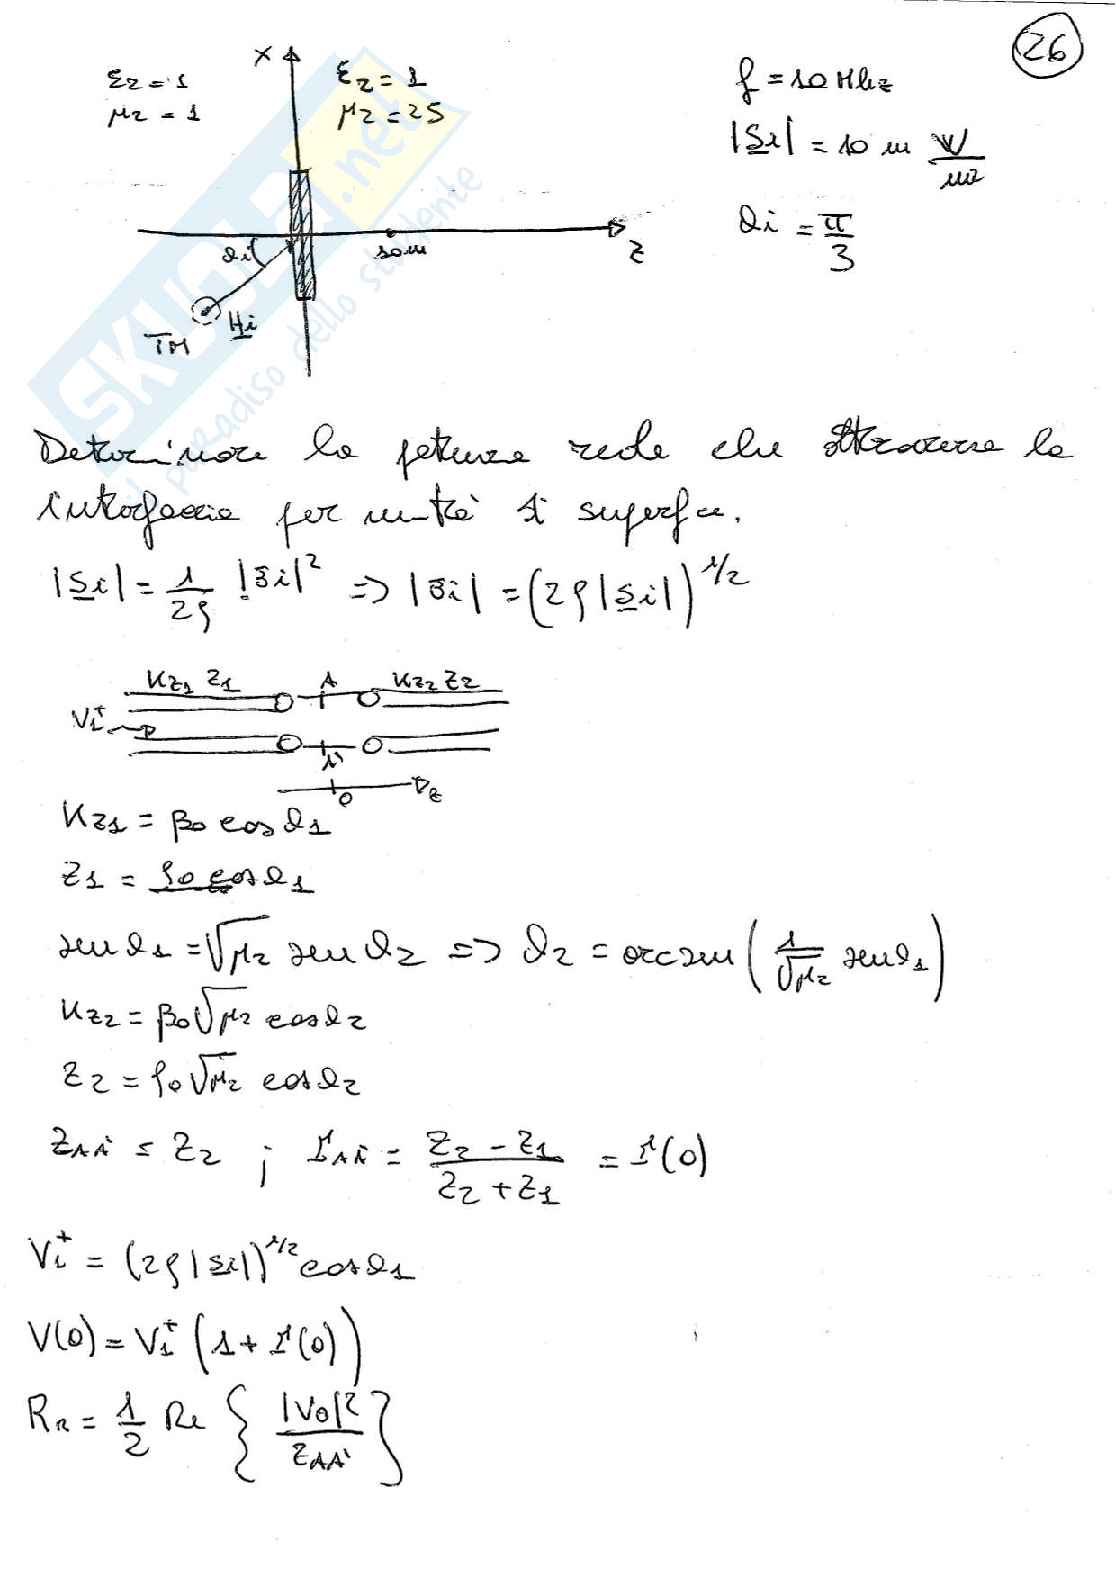 26
X
εr = 1
μr = 1
εr = 1
μr = 25
f = 10 MHz
|Si| = 10 m W/m²
θi = π/3
θi
10 m
Z
Hi
TM
SKUOLA.net
il paradiso dello studente
Determinare la potenza reale che attraversa la
interfaccia per unità di superficie.
|Si| = 1/2ζ |Ei|² => |Ei| = (2ζ|Si|)^1/2
Kz1 Z1 A Kz2 Z2
V1+
A'
0 z
Kz1 = β0 cosθ1
Z1 = ζ0 cosθ1
senθ1 = √μ2 senθ2 => θ2 = arcsen(1/√μ2 senθ1)
Kz2 = β0√μ2 cosθ2
Z2 = ζ0√μ2 cosθ2
ZAA' = Z2 ; ΓAA' = (Z2 - Z1)/(Z2 + Z1) = Γ(0)
V1+ = (2ζ|Si|)^1/2 cosθ1
V(0) = V1+ (1 + Γ(0))
= 1/2 Re { |V0|²/ZAA' }